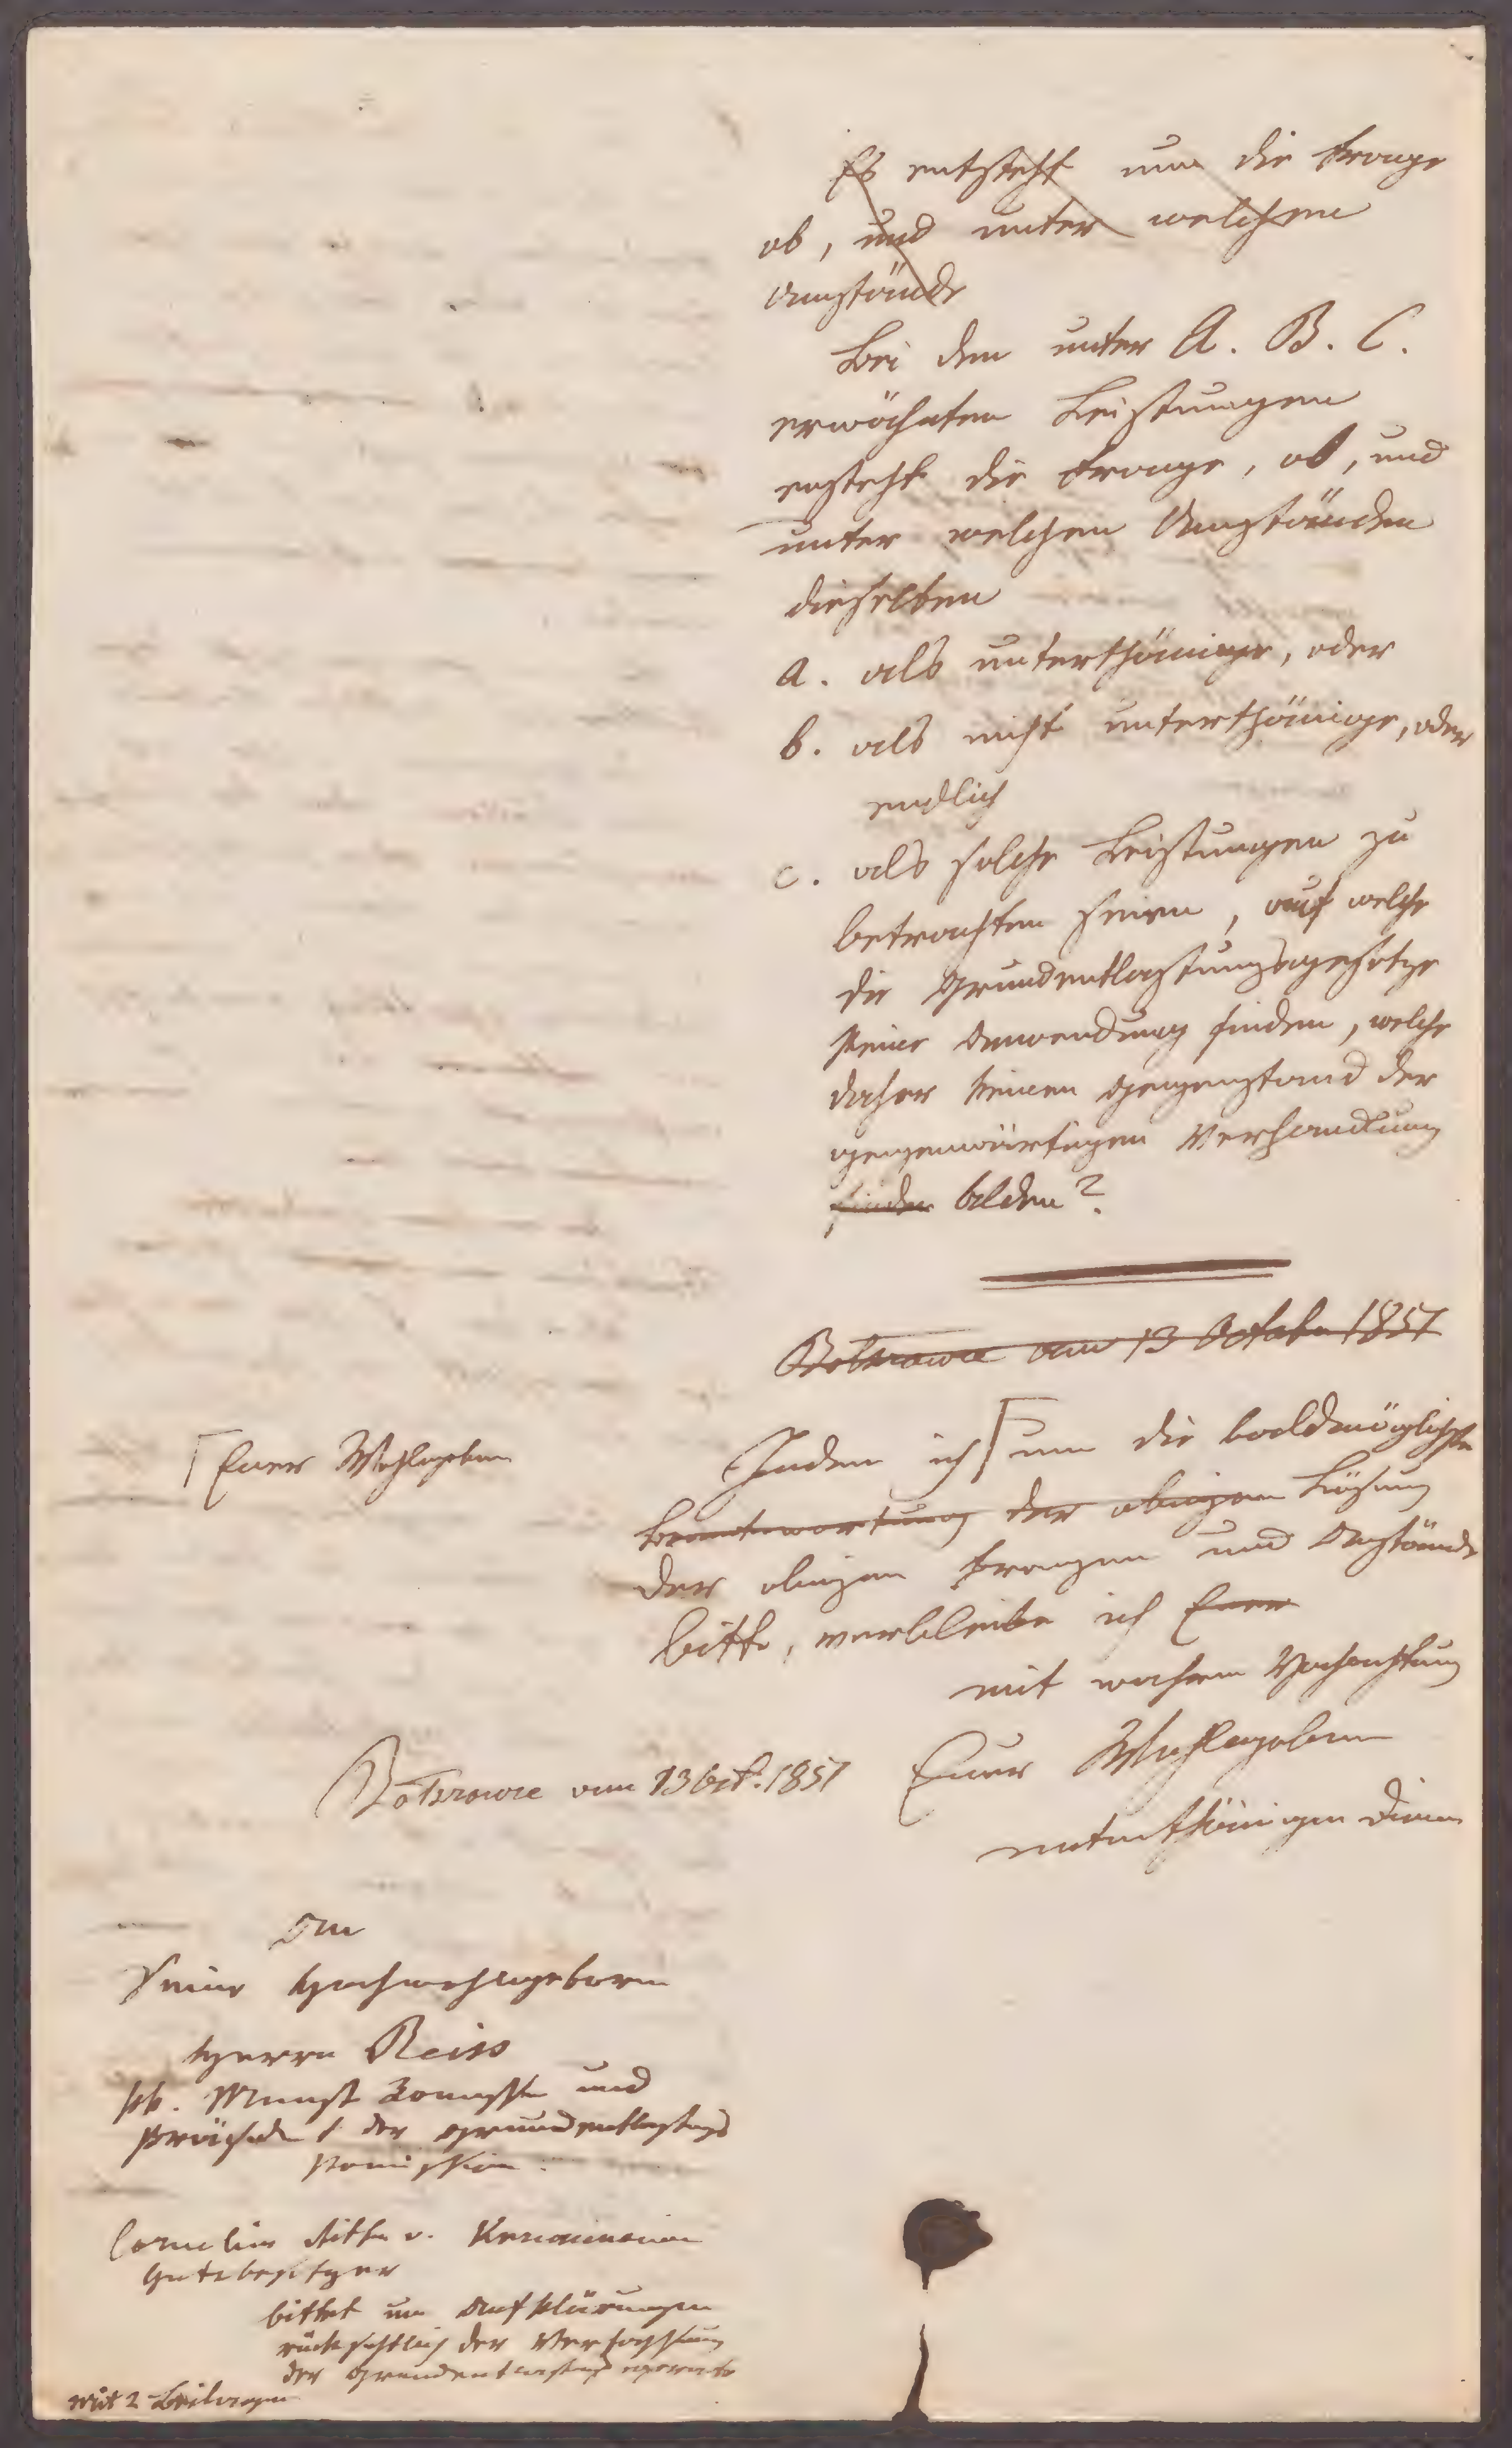 Es entsteht nun die Frage
ob, und unter welchem
Umstände
Bei den unter A. B. C.
erwähnten Leistungen
ensteht die Frage, ob, und
unter welchen Umständen
dieselben
a. als unterthänige, oder
b. als nicht unterthänige, oder
endlich
c. als solche Leistungen zu
betrachten seien, auf welche
die Grundentlastungsgesetze
keine Anwendung finden, welche
daher keinen Gegenstand der
gegenwärtigen Verhandlung
finden bilden?
am 13 October 1851
Indem ich um die baldmöglichste
Beantwortung der obigen Lösung
der obigen Fragen und Anstände
bitte, verbleibe ich Euer
mit wahrer Hochachtung
Euer Wohlgeboren
unterthänigen Diener
Euer Wohlgeboren
am 13 Oct. 1851
An
Seine Hochwohlgeboren
Herrn Reiss
kk. und
Präsident der Grundentlastungs
Komission
Cornelius Ritter v.
Gutsbesitzer
bittet um Aufklärungen
rücksichtlich der Verfassung
der Grundentlastungs operate
mit 2 Beilagen